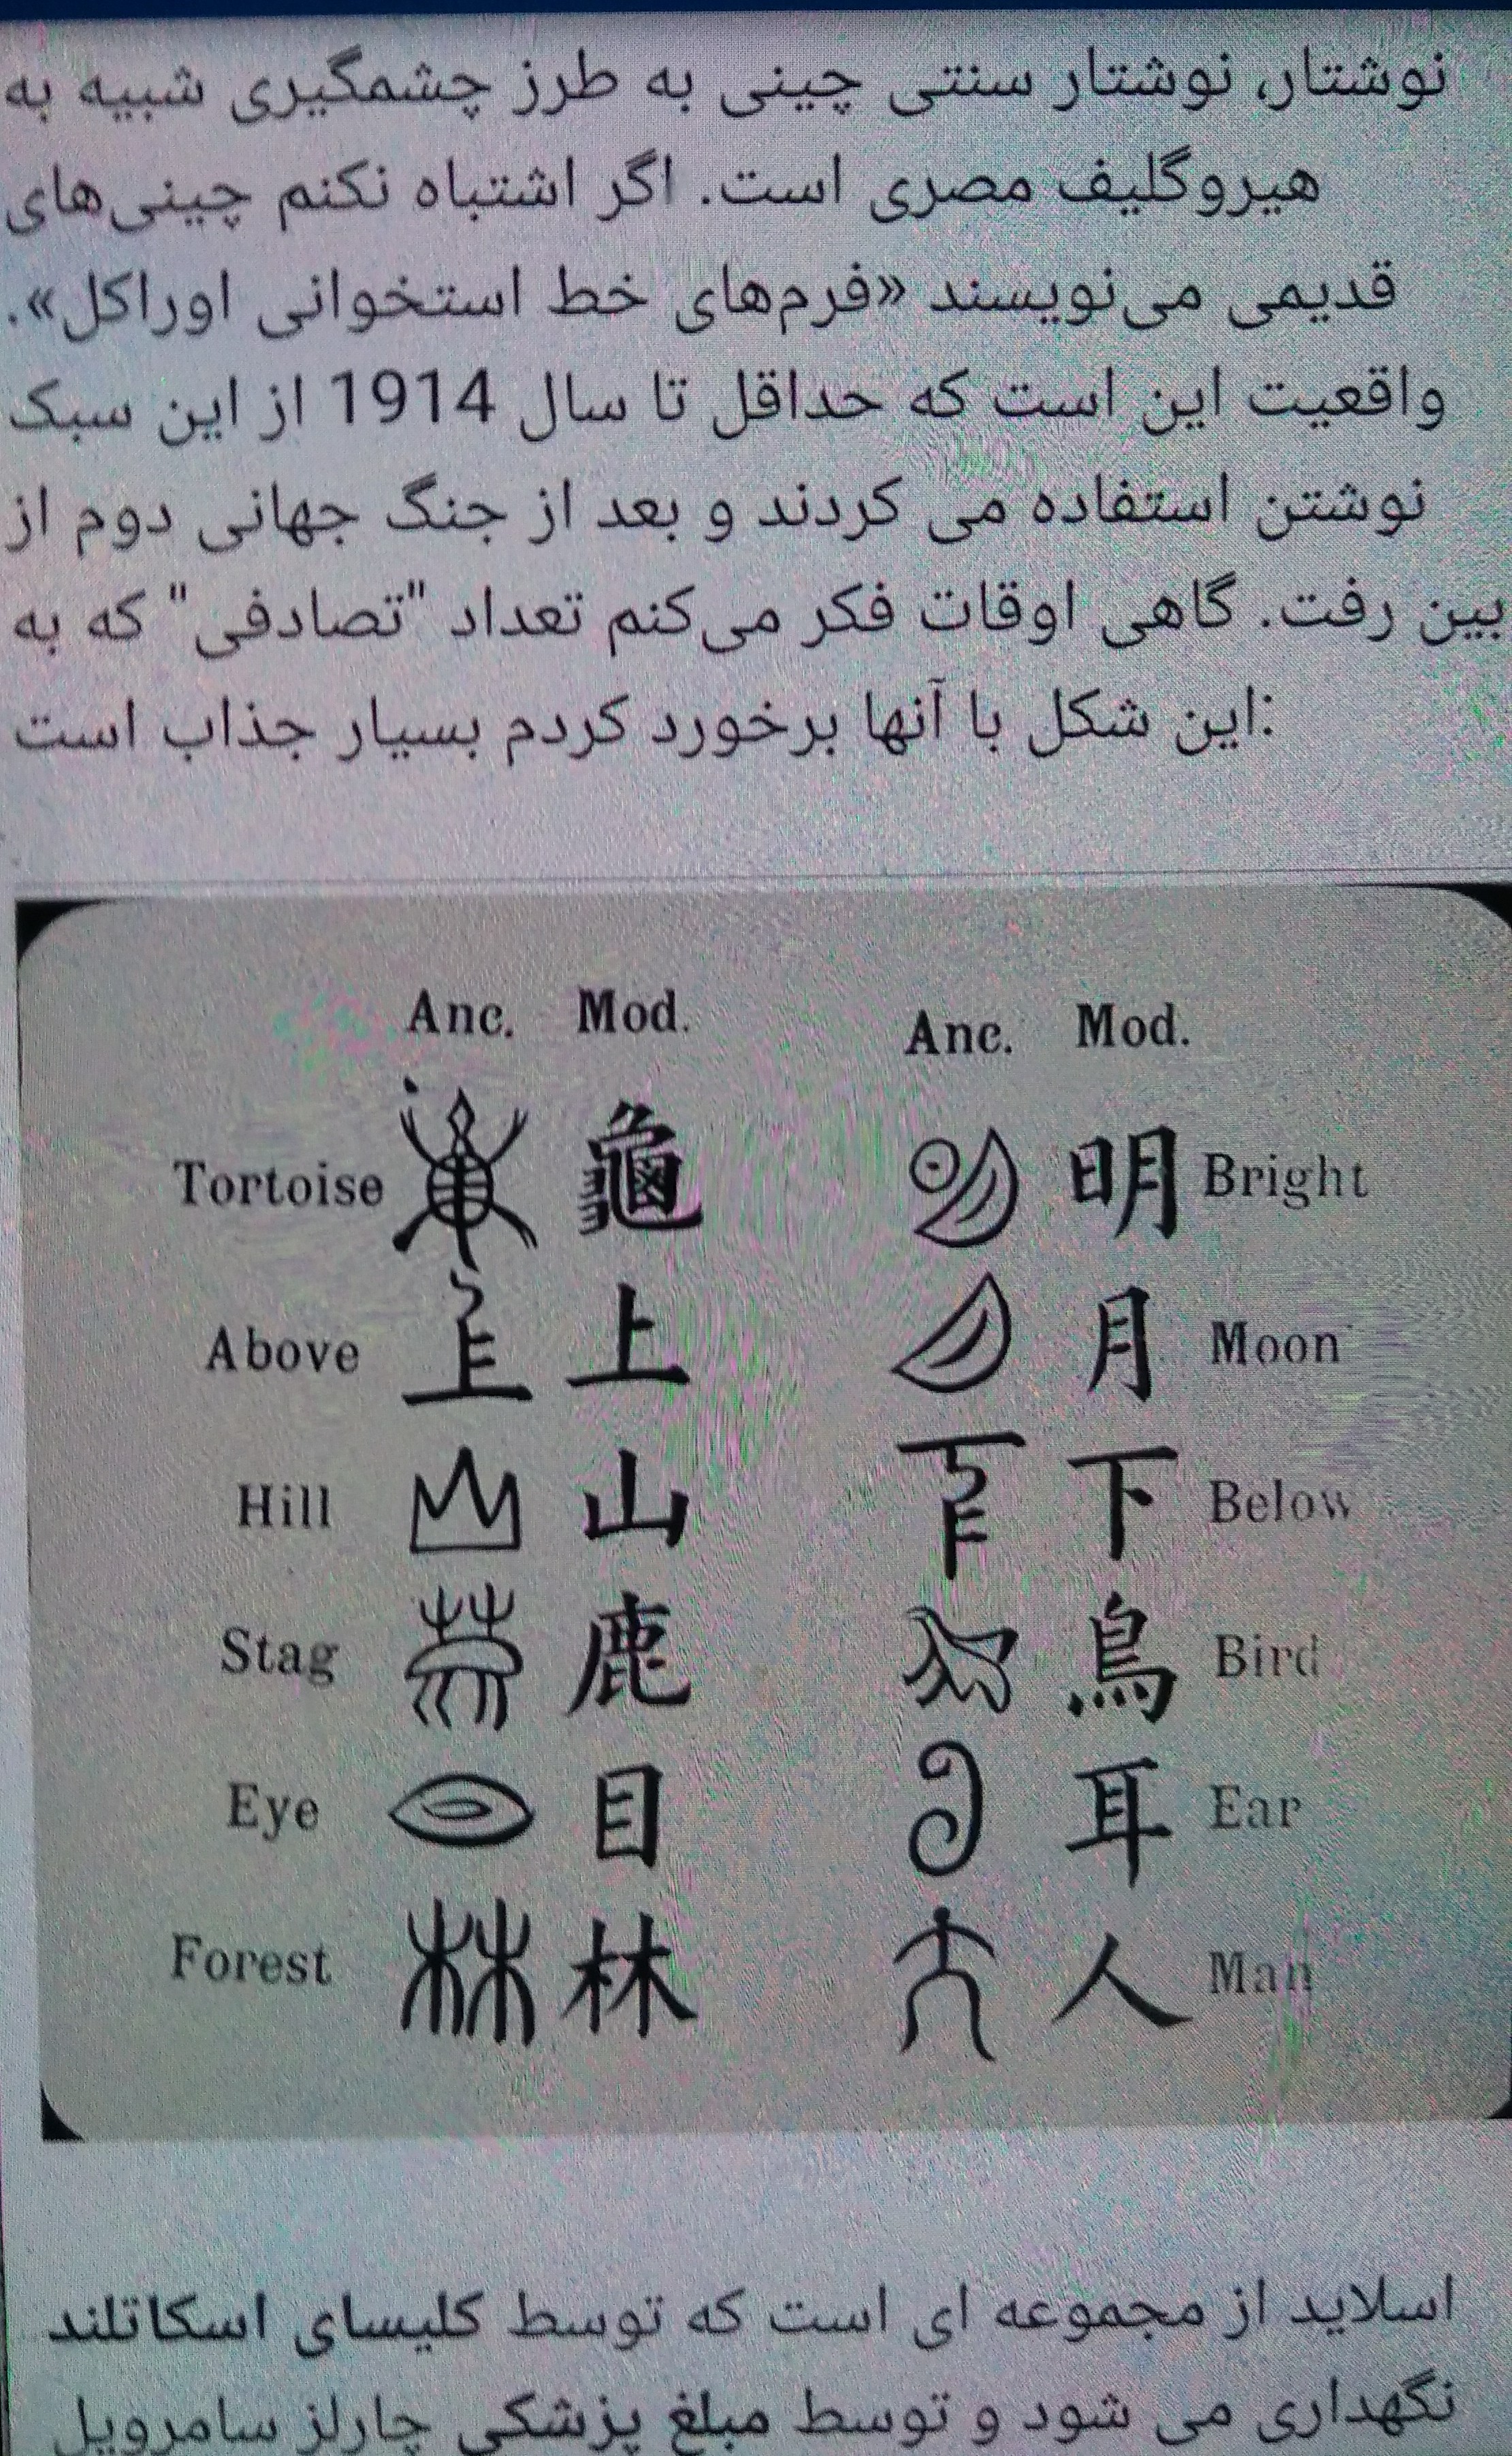 نوشتار، نوشتار سنتی چینی به طرز چشمگیری شبیه به
هیروگلیف مصری است. اگر اشتباه نکنم چینی‌های
قدیمی می‌نویسند «فرم‌های خط استخوانی اوراکل».
واقعیت این است که حداقل تا سال 1914 از این سبک
نوشتن استفاده می کردند و بعد از جنگ جهانی دوم از
بین رفت. گاهی اوقات فکر می‌کنم تعداد "تصادفی" که به
این شکل با آنها برخورد کردم بسیار جذاب است:
Anc. Mod. Anc. Mod.
Tortoise 龜 明 Bright
Above 上 月 Moon
Hill 山 下 Below
Stag 鹿 鳥 Bird
Eye 目 耳 Ear
Forest 林 人 Man
اسلاید از مجموعه ای است که توسط کلیسای اسکاتلند
نگهداری می شود و توسط مبلغ پزشکی چارلز سامرویل